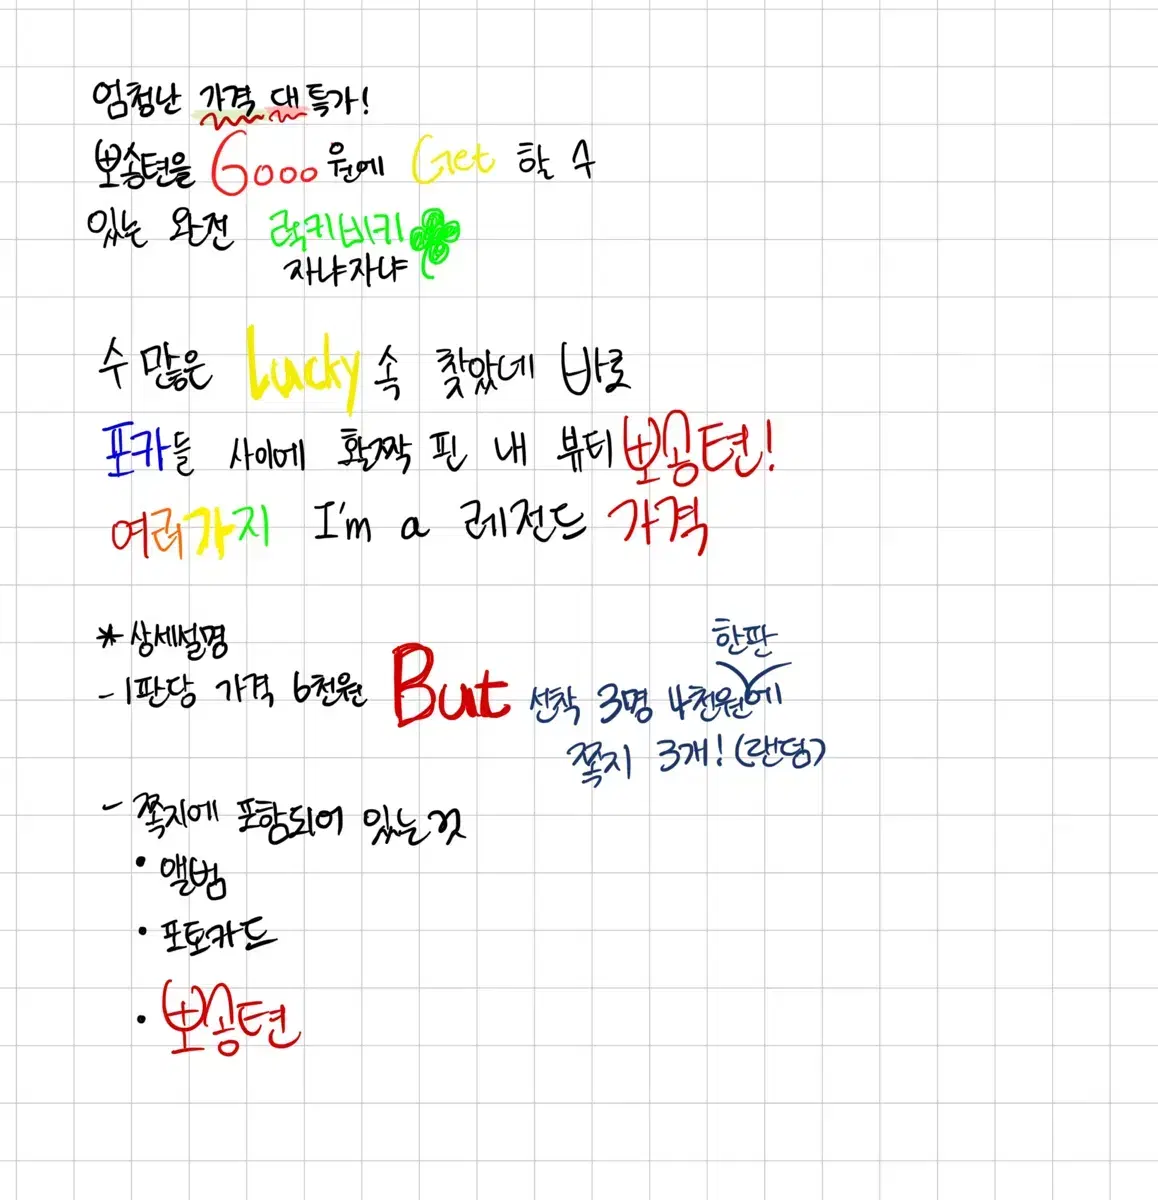 엄청난 가격 대특가!
뽀송텬을 6000원에 Get 할 수
있는 완전 럭키비키
자냐자냐
수 많은 Lucky 속 찾았네 바로
포카들 사이에 활짝 핀 내 뷰티 뽀송텬!
여러가지 I'm a 레전드 가격
* 상세설명
- 1판당 가격 6천원 But 선착 3명 4천원 한판에
쪽지 3개! (랜덤)
- 쪽지에 포함되어 있는 것
• 앨범
• 포토카드
• 뽀송텬